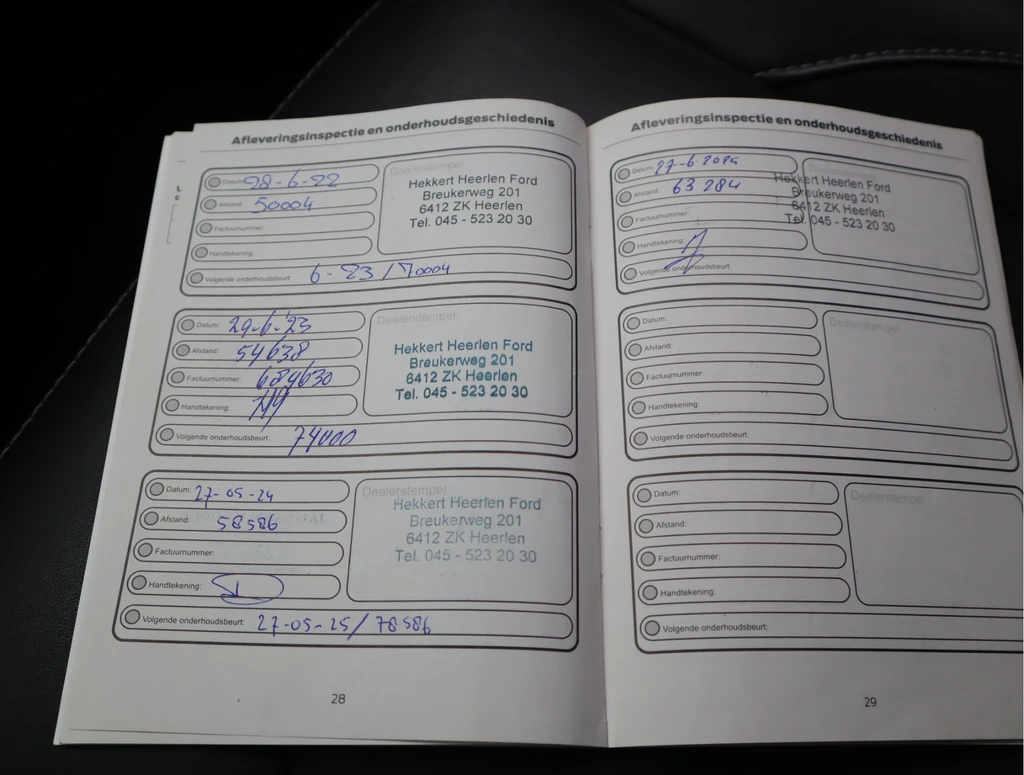 Afleveringsinspectie en onderhoudsgeschiedenis
Datum: 28-6-22
Afstand: 50004
Factuurnummer:
Handtekening:
Volgende onderhoudsbeurt: 6-23/70004
Dealerstempel
Hekkert Heerlen Ford
Breukerweg 201
6412 ZK Heerlen
Tel. 045 - 523 20 30
Datum: 29-6-'23
Afstand: 54638
Factuurnummer: 684630
Handtekening:
Volgende onderhoudsbeurt: 74000
Dealerstempel
Hekkert Heerlen Ford
Breukerweg 201
6412 ZK Heerlen
Tel. 045 - 523 20 30
Datum: 27-05-24
Afstand: 58586
Factuurnummer:
Handtekening:
Volgende onderhoudsbeurt: 27-05-25/78586
Dealerstempel
Hekkert Heerlen Ford
Breukerweg 201
6412 ZK Heerlen
Tel. 045 - 523 20 30
28
Afleveringsinspectie en onderhoudsgeschiedenis
Datum: 27-6 2025
Afstand: 63 284
Factuurnummer:
Handtekening:
Volgende onderhoudsbeurt:
Dealerstempel
Hekkert Heerlen Ford
Breukerweg 201
6412 ZK Heerlen
Tel. 045 - 523 20 30
Datum:
Afstand:
Factuurnummer:
Handtekening:
Volgende onderhoudsbeurt:
Dealerstempel
Datum:
Afstand:
Factuurnummer:
Handtekening:
Volgende onderhoudsbeurt:
Dealerstempel
29